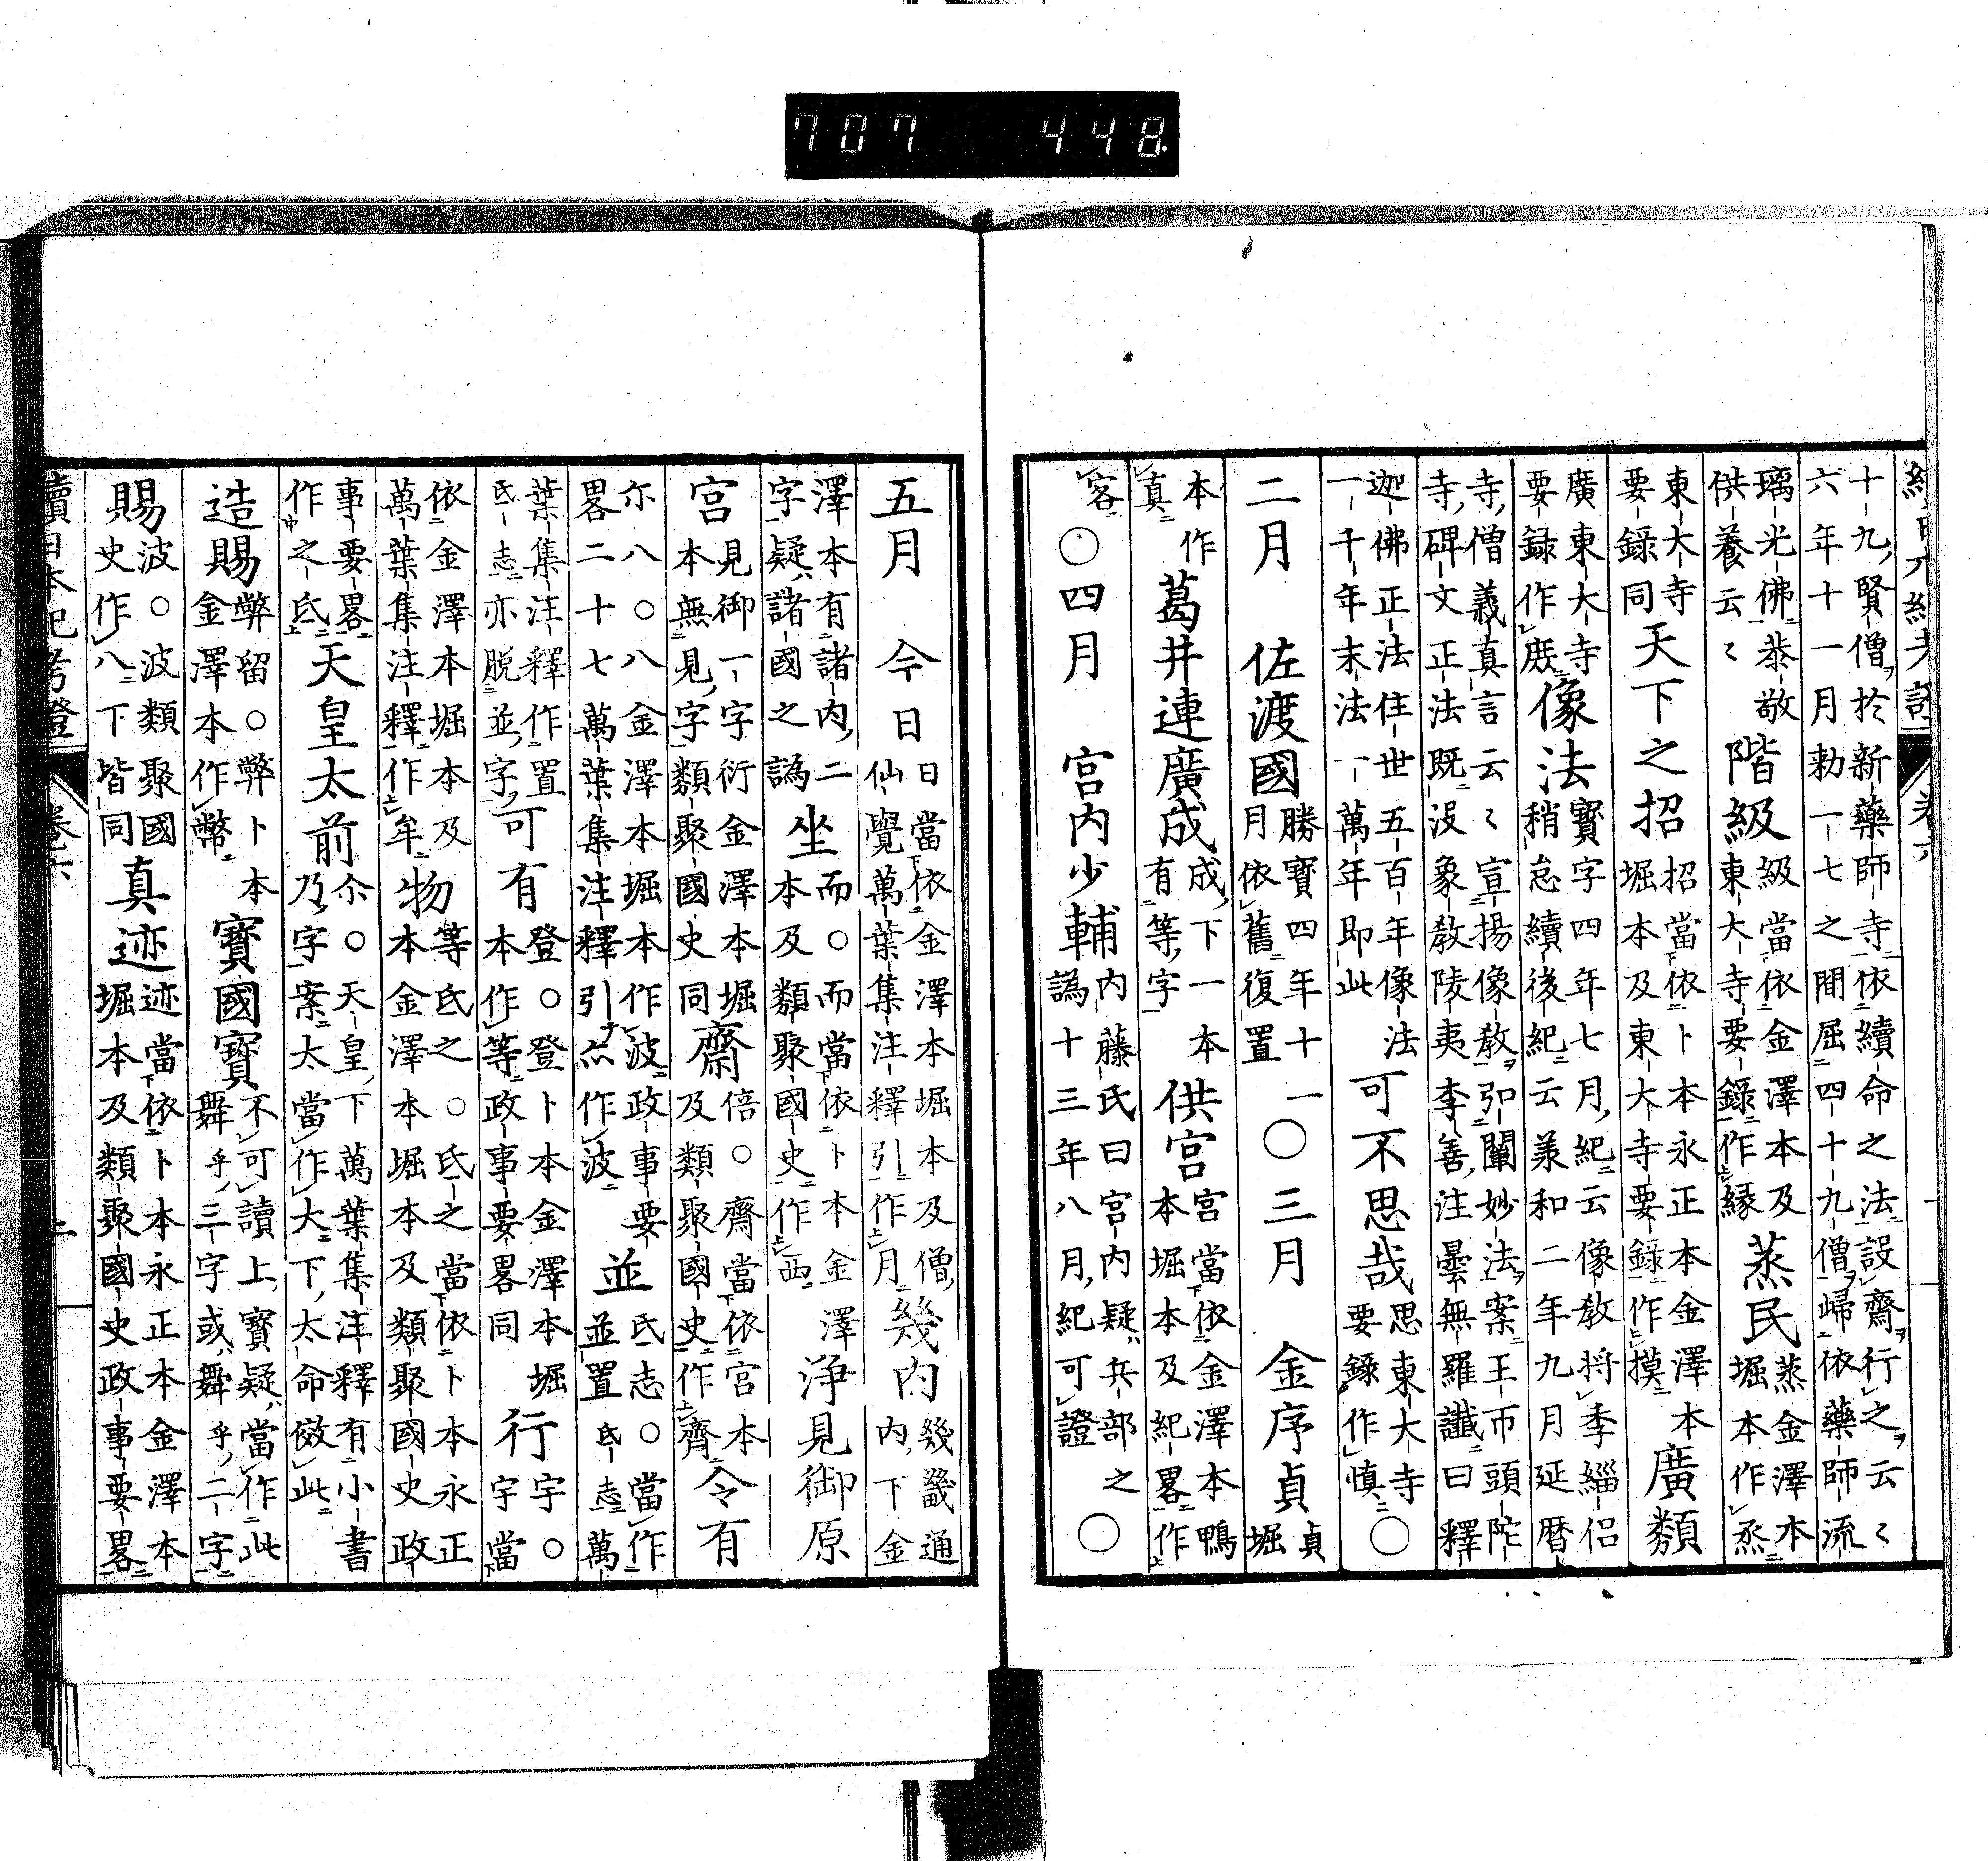 十九賢僧於新藥師寺依續命之法設齋行之云々
六年十一月勅一七之間屈四十九僧歸依藥師流
璃光佛恭敬
供養云々
階級
級當依金澤本及
東大寺要錄作縁
蒸民
蒸金澤本
堀本作烝
東大寺
要錄同
天下之招
招當依卜本永正本金澤本
堀本及東大寺要錄作摸
廣類
廣東大寺
要録作庶
像法
寶字四年七月紀云像教将季緇侶
稍怠續後紀云兼和二年九月延暦
寺僧義真言云々宣揚像教弘闡妙法案王巾頭陀
寺碑文正法既沒象教陵夷李善注曇無羅讖曰釋
迦佛正法住世五百年像法
一千年末法一萬年即此
可不思哉
思東大寺
要錄作慎
○
二月　佐渡國
勝寶四年十一
月依舊復置
○三月　金序貞
貞
堀
本作
真
葛井連廣成
成下一本
有等字
供宮
宮當依金澤本鴨
本堀本及紀畧作
客
○四月　宮内少輔
内藤氏曰宮内疑兵部之
譌十三年八月紀可證
○
五月　今日
日當依金澤本堀本及僧
仙覺萬葉集注釋引作月
幾内
幾畿通
内下金
澤本有諸内二
字疑諸國之譌
坐
而○而當依卜本金澤
本及類聚國史作西
淨見御原
宮
見御一字衍金澤本堀
本無見字類聚國史同
齋
倍○齋當依宮本
及類聚國史作齊
令有
尒八○八金澤本堀本作波政事要
畧二十七萬葉集注釋引尒作波
並
氐志○當作
並置氐志萬
葉集注釋作置
氐志亦脱並字
可有
登○登卜本金澤本堀
本作等政事要畧同
行
字○
字當
依金澤本堀本及
萬葉集注釋作牟
物
等氐之○氐之當依卜本永正
本金澤本堀本及類聚國史政
事要畧
作之氐
天皇太前
尒○天皇下萬葉集注釋有小書
乃字案太當作大下太命倣此
造賜
弊留○弊卜本
金澤本作幣
寶國寶
不可讀上寶疑當作此
舞乎三字或舞乎二字
賜
波○波類聚國
史作八下皆同
真迹
迹當依卜本永正本金澤本
堀本及類聚國史政事要畧
續日本紀考證　卷六
707 448